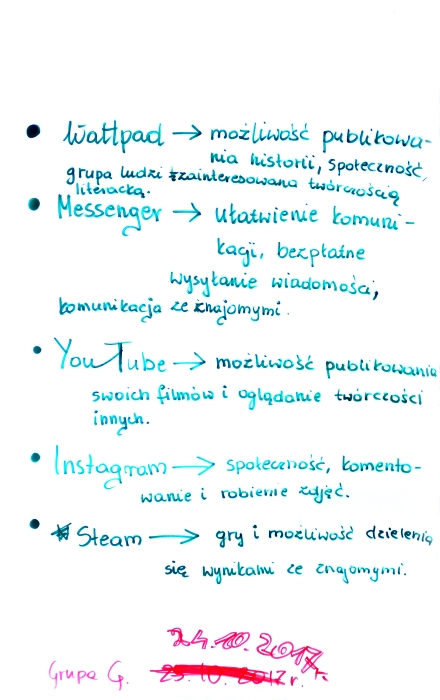 • Wattpad → możliwość publikowa-
nia historii, społeczność,
grupa ludzi zainteresowana twórczością
literacką.
• Messenger → ułatwienie komuni-
kacji, bezpłatne
wysyłanie wiadomości,
komunikacja ze znajomymi.
• YouTube → możliwość publikowania
swoich filmów i oglądanie twórczości
innych.
• Instagram → społeczność, komento-
wanie i robienie zdjęć.
• Steam → gry i możliwość dzielenia
się wynikami ze znajomymi.
24.10.2017r.
Grupa G. 25.10.2017r.